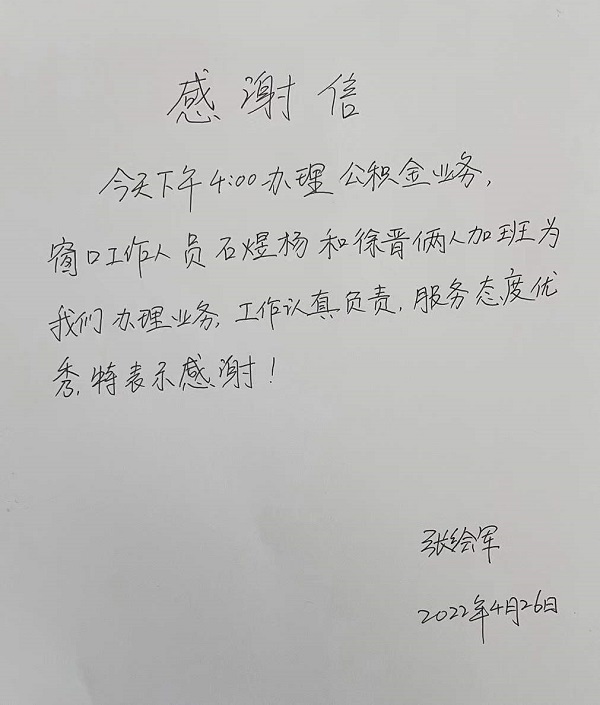 感谢信
今天下午4:00办理公积金业务,
窗口工作人员石煜杨和徐晋俩人加班为
我们办理业务,工作认真负责,服务态度优
秀,特表示感谢!
张绘军
2022年4月26日